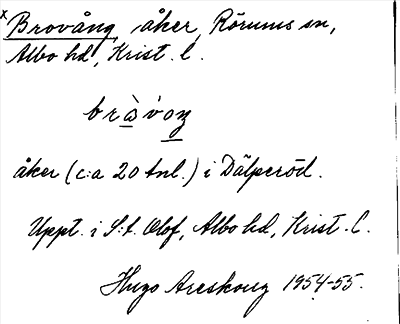 x Brovång, åker, Rörums sn,
Albo hd, Krist. l.
brå̀voŋ
åker (c:a 20 tnl.) i Dälperöd.
Uppt. i S:t. Olof, Albo hd, Krist. l.
Hugo Areskoug 1954-55.